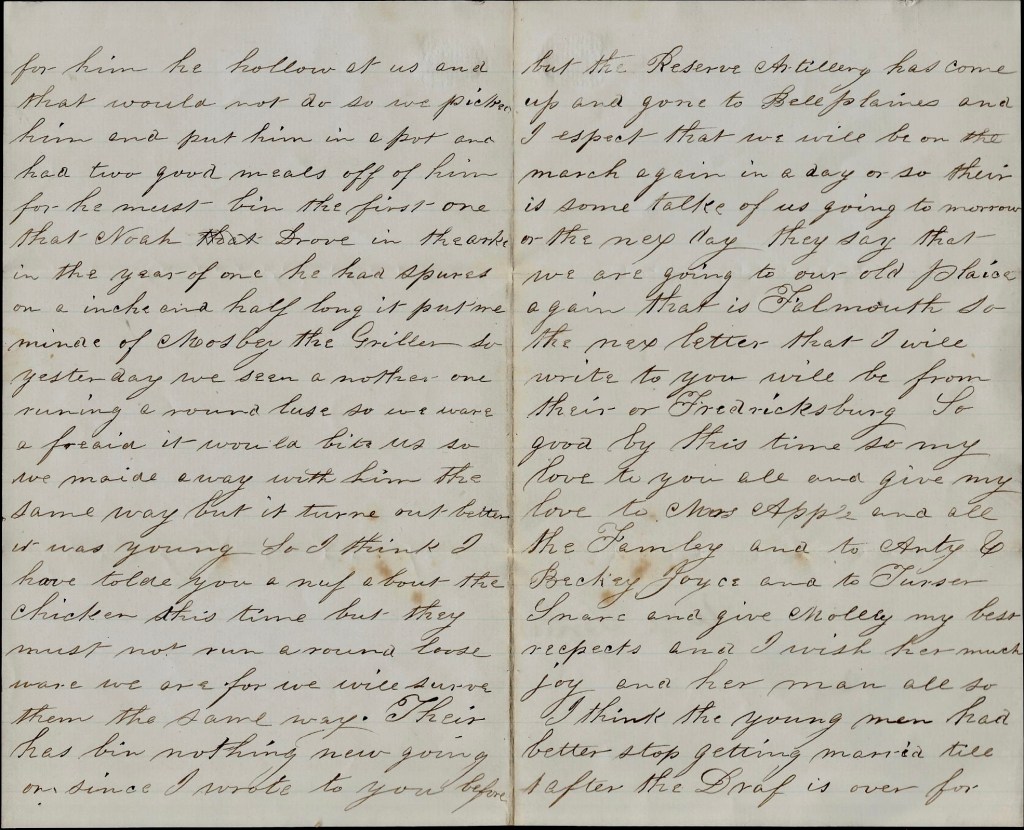 for him he hollow at us and
that would not do so we picked
him and put him in a pot and
had two good meals off of him
for he must bin the first one
that Noah that Drove in the arke
in the year of one he had spures
on a inche and half long it put me
minde of Mosbey the Griller so
yesterday we seen a nother one
runing a round luse so we ware
a freaid it would bite us so
we maide away with him the
same way but it turne out better
it was young So I think I
have tolde you a nuf about the
chicken this time but they
must not run a round loose
ware we are for we will surve
them the same way. Their
has bin nothing new going
on since I wrote to you before
but the Reserve Artillery has come
up and gone to Bellplaines and
I espect that we will be on the
march again in a day or so their
is some talke of us going to morrow
or the nex day they say that
we are going to our old plaice
again that is Falmouth so
the nex letter that I will
write to you will be from
their or Fredricksburg So
good by this time so my
love to you all and give my
love to Mrs App's and all
the Famley and to Anty &
Beckey Joyce and to Turser
Snare and give Molley my best
recpects and I wish her much
joy and her man all so
I think the young men had
better stop getting married till
after the Draf is over for